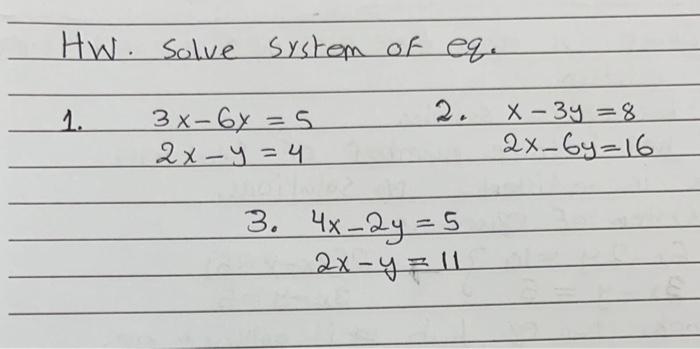 HW. Solve System of eq.
1. 3x-6y=5 2. x-3y=8
2x-y=4 2x-6y=16
3. 4x-2y=5
2x-y=11